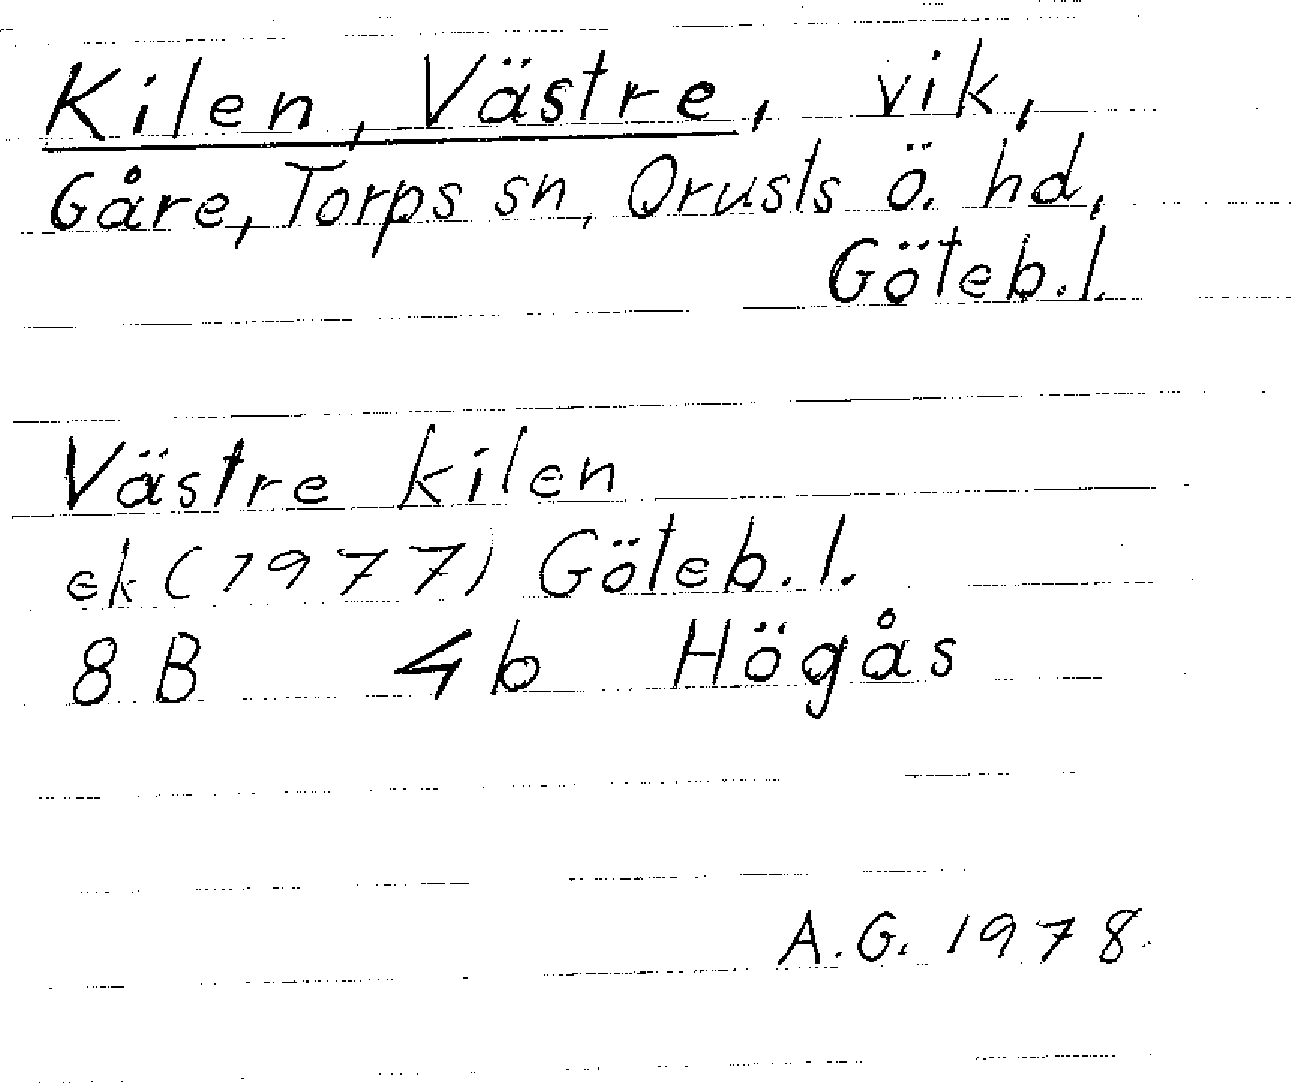 Kilen, Västre, vik,
Gåre, Torps sn, Orusts ö. hd,
Göteb. l.
Västre kilen
ek (1977) Göteb. l.
8 B 4b Högås
A. G. 1978.